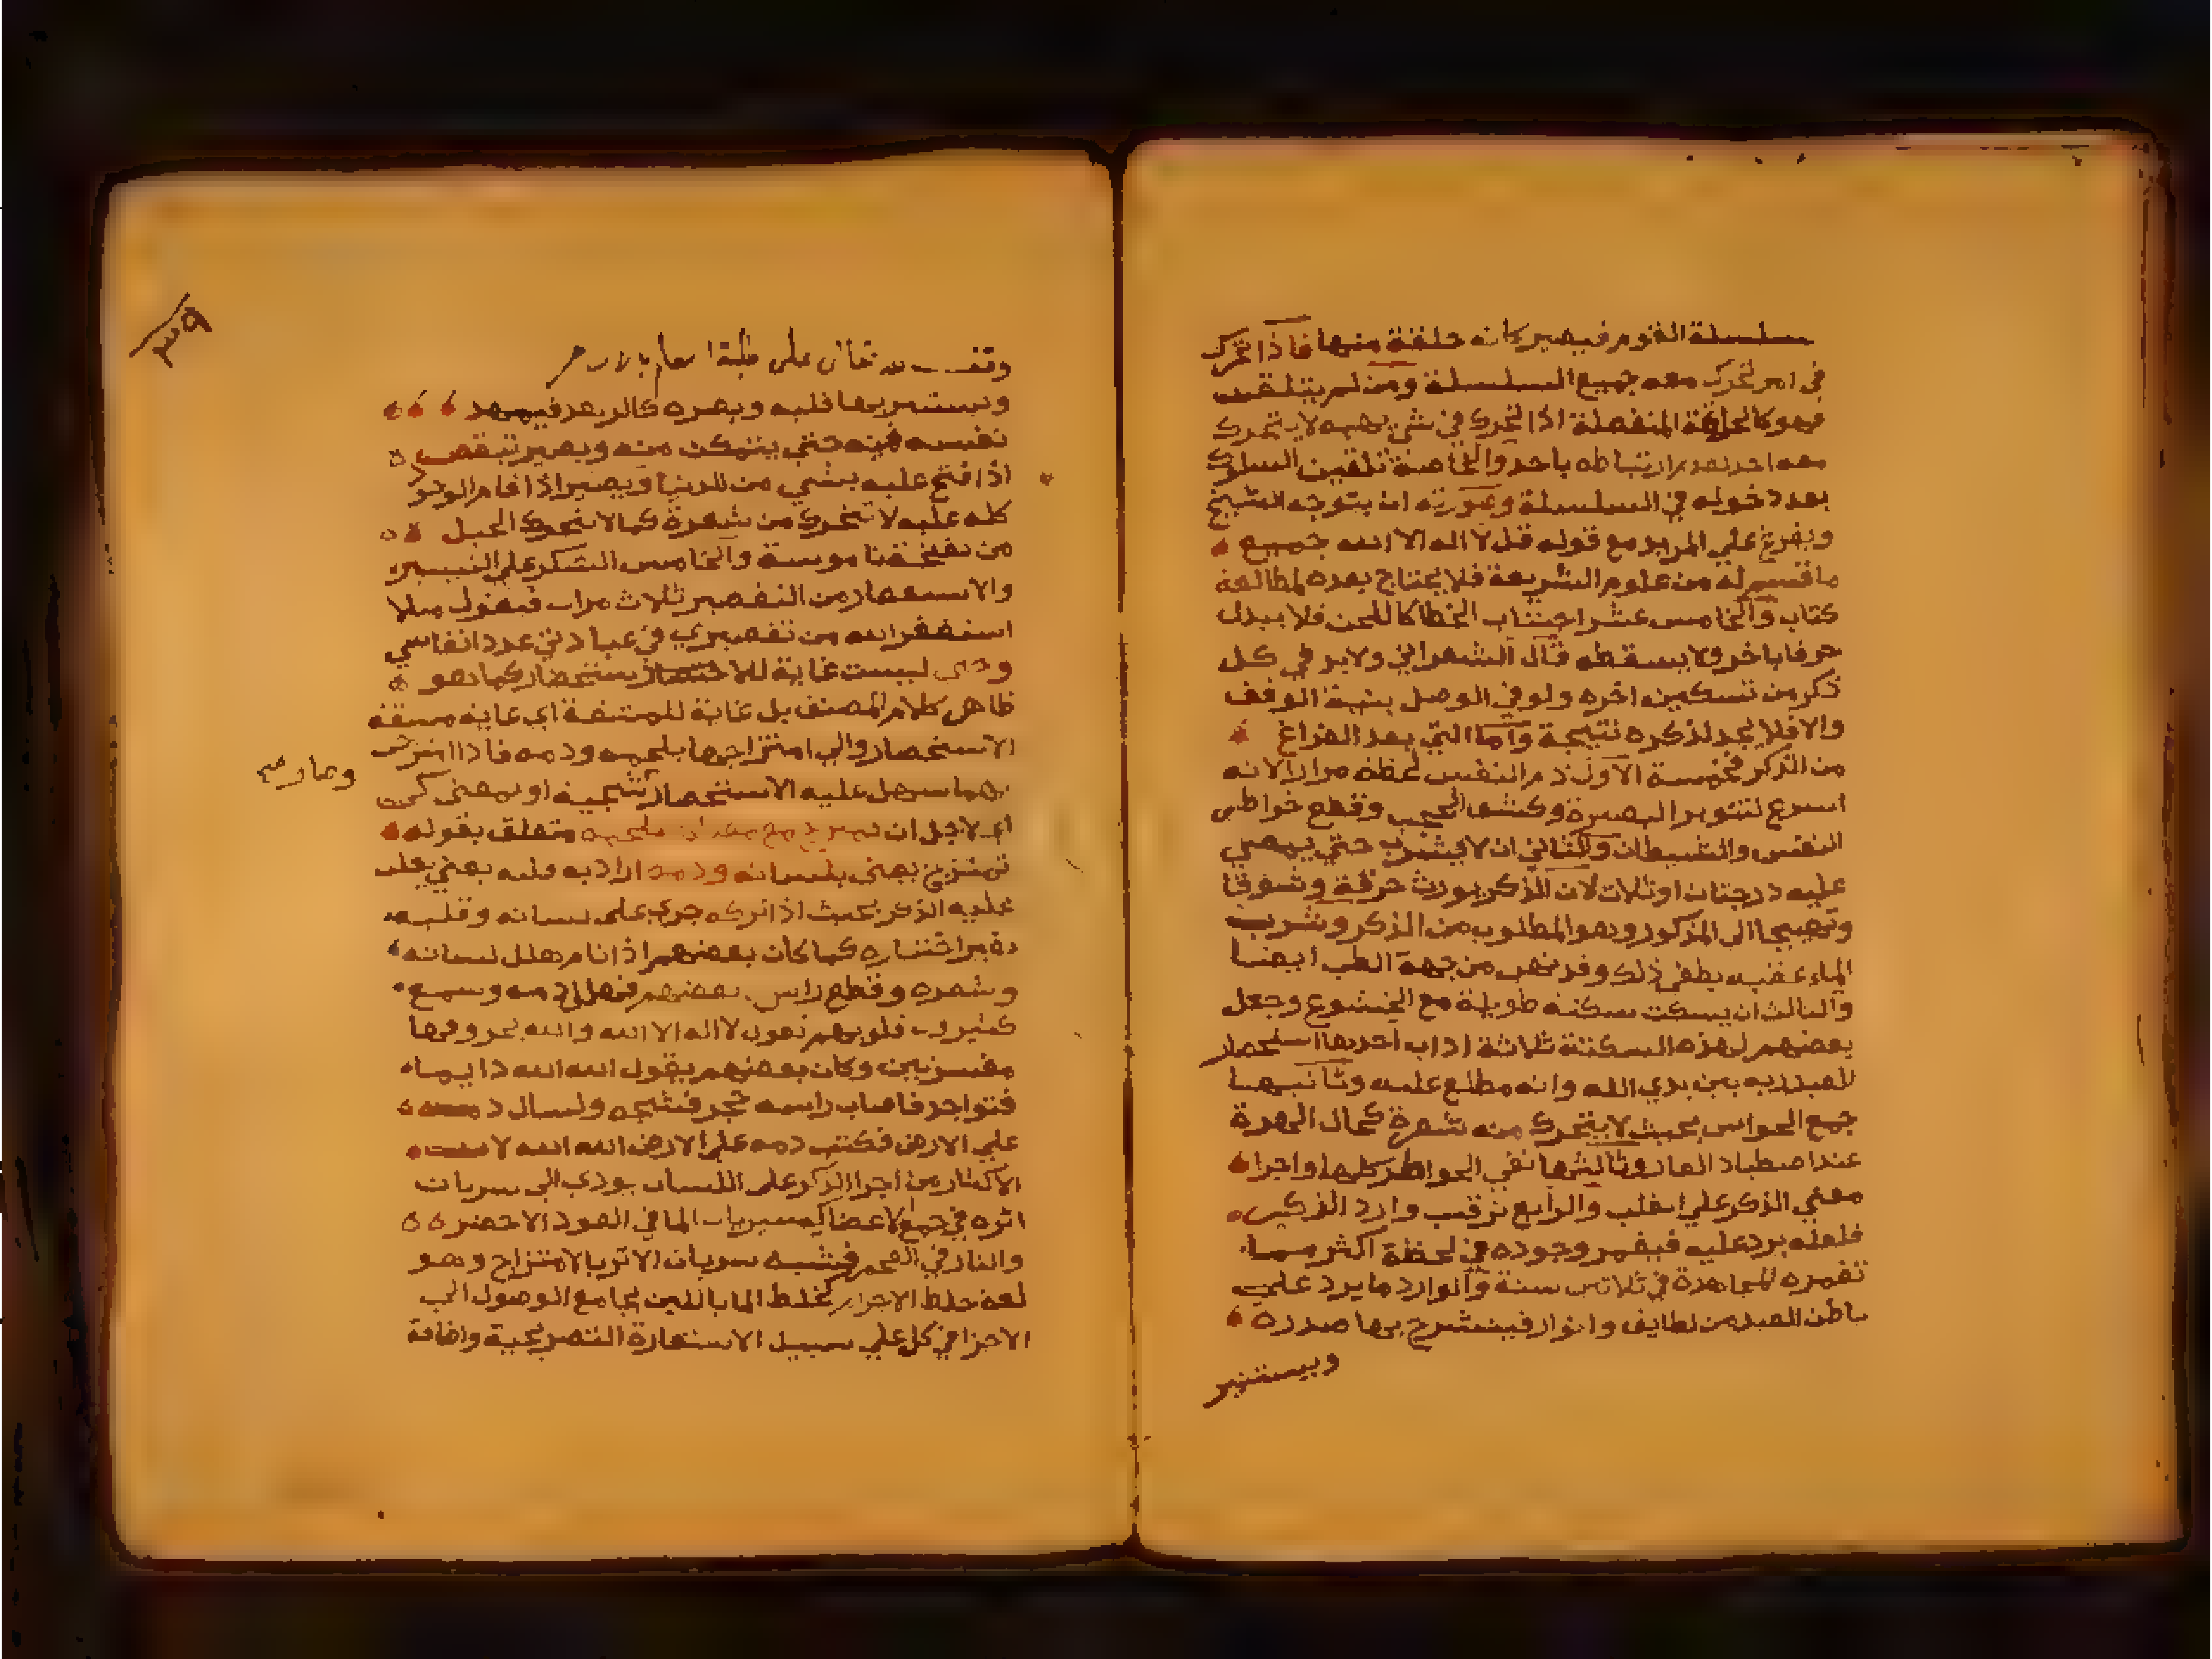 سلسلة القوم فيصير كانه حلقة منها فاذا تحرك
في امر تحرك معه جميع السلسلة ومن لم يتلقن
فهو كالحلقة المنفصلة اذا تحرك في شي يهمه لا يتحرك
معه احد لعدم ارتباطه باحد والخاصة تلقين السلوك
بعد دخوله في السلسلة وصورته ان يتوجه الشيخ
ويفرغ علي المريد مع قوله قل لا اله الا الله جميع
ما قسم له من علوم الشريعة فلا يحتاج بعده لمطالعة
كتاب والخامس عشر اجتناب الخطا كاللحن فلا يبدل
حرفا باخر ولا يسقطه قال الشعراني ولا بد في كل
ذكر من تسكين اخره ولو في الوصل بنية الوقف
والا فلا يجد لذكره نتيجة واما التي بعد الفراغ
من الذكر فخمسة الاول ذم النفس لحظة مرارا لانه
اسرع لتنوير البصيرة وكشف الحجب وقطع خواطر
النفس والشيطان والثاني ان لا يشرب حتي يمضي
عليه درجتان او ثلاث لان الذكر يورث حرقة وشوقا
وتهييجا الى المذكور وهو المطلوب من الذكر وشرب
الماء عقبه يطفي ذلك وقد نهى من جهة الطب ايضا
والثالث ان يسكت سكتة طويلة مع الخشوع وجعل
بعضهم لهذه السكتة ثلاثة اداب احدها استحضار
العبد انه بين يدي الله وانه مطلع عليه وثانيها
جمع الحواس بحيث لا يتحرك منه شعرة كحال الهرة
عند اصطياد الفار وثالثها نفي الخواطر كلها واجرا
معني الذكر علي القلب والرابع ترقب وارد الذكر
فلعله يرد عليه فيغمر وجوده في لحظة اكثر مما
تغمره المجاهدة في ثلاثين سنة والوارد ما يرد علي
باطن العبد من لطايف وانوار فينشرح بها صدره
ويستنير
٣٩
وقف لله تعالى على طلبة العلم
ويستنير بها قلبه وبصره كالزهد فيمهد
نفسه فيه حتي يتمكن منه ويصير
اذا فتح عليه بشي من الدنيا ويصير اذا قام الوجود
كله عليه لا تتحرك من شعرة كما لا يتحرك الجبل
من نفخة ناموسة والخامس الشكر علي التيسير
والاستغفار من التقصير ثلاث مرات فيقول مثلا
استغفر الله من تقصيري في عبادتي عدد انفاسي
وحتى ليست غاية للاستحضار كما هو
ظاهر كلام المصنف بل غاية للمشقة اي غاية مشقة
الاستحضار والي امتزاجها بلحمه ودمه فاذا امتزجت
بهما سهل عليه الاستحضار او بمعنى كي
اي لاجل ان تمتزج مع معناها بلحمه متعلق بقوله
تمتزج يعني بلسانه ودمه اراد به قلبه يعني يغلب
عليه الذكر بحيث اذا تركه جرى على لسانه وقلبه
بغير اختياره كما كان بعضهم اذا نام هلل لسانه
وشعره وقطع راس بعضهم فهلل دمه وسمع
كثيرون قلوبهم تقول لا اله الا الله والله بحروفها
مفسرتين وكان بعضهم يقول الله الله دايما
فتواجد فاصاب راسه حجر فشجه ولسال دمه
علي الارض فكتب دمه علي الارض الله الله لان
الاكثار من اجرا الذكر على اللسان يودي الى سريان
اثره في جميع الاعضا كسريان الما في العود الاخضر
والنار في الفحم فشبه سريان الاثر بالامتزاج وهو
لغة خلط الاجزا كخلط الما باللبن بجامع الوصول الي
الاجزا في كل علي سبيل الاستعارة التصريحية واضافة